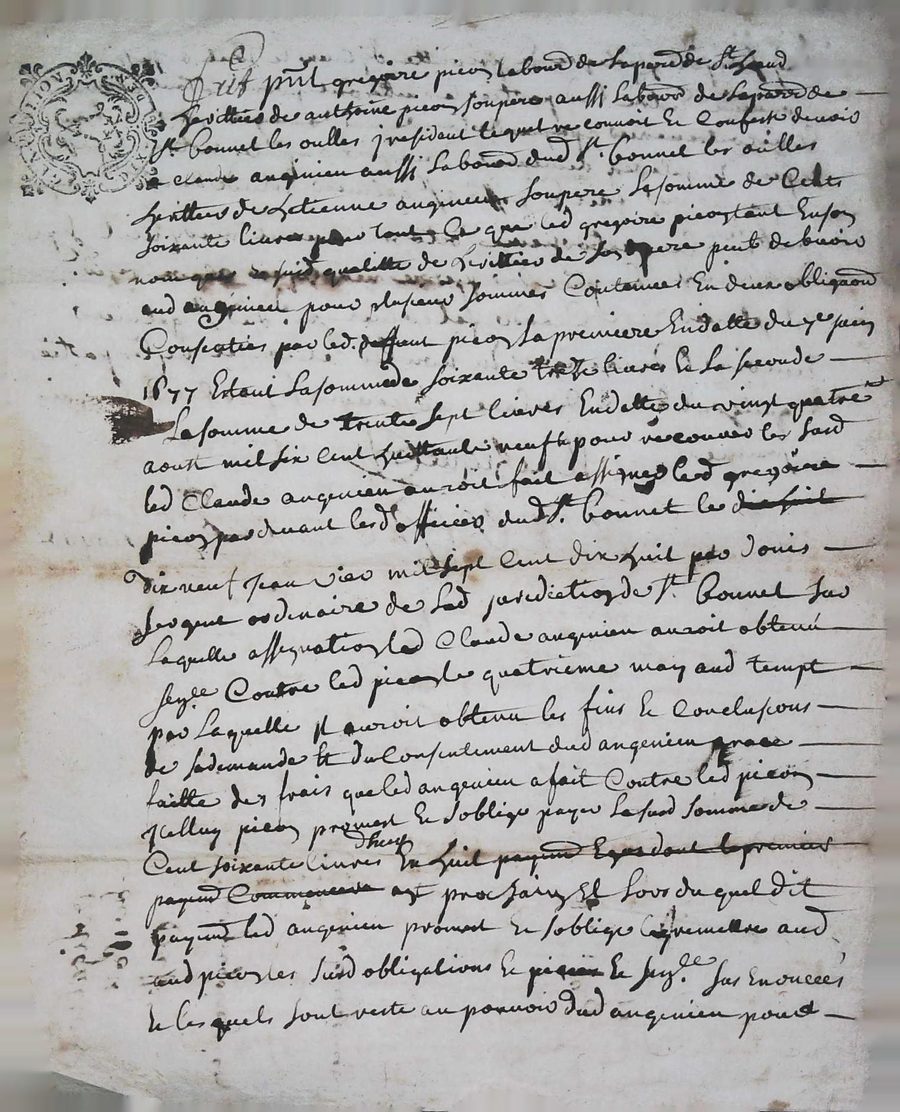 fut pnt gregoire picon labourd de la parro de St
herittier de anthoine picon son pere aussi labourd de la parro de
St bonnet les oulles y residant lequel reconnoit et confesse devoir
a claude angenieu aussi labourd dud St bonnet les oulles
herittier de Estienne angenieu son pere la somme de Cent
soixante livres pour tout ce que led gregoire picon tant En son
nom que qualitte de herittier de son pere peut debvoir
aud angenieu pour plusieurs sommes Contenues En deux obligaons
Consenties par led deffunt picon la premiere En datte du 7e juin
1677 Estant la somme de soixante treize livres et la seconde
la somme de trente sept livres En datte du vingt quatre
aoust mil six cent huittante neuf pour recouvrer les susd
led Claude angenieu auroit fait assigner led gregoire
picon par devant les officiers dud St bonnet le dix huit
Dix neuf janvier mil sept cent dix huit par
sergent ordinaire de lad juridiction de St bonnet sur
laquelle assignation led Claude angenieu auroit obtenu
sence Contre led picon le quatrieme may aud tempt
par laquelle jl auroit obtenu les fins et Conclusions
de sa demande Et du Consentement dud angenieu grace
faitte des frais que led angenieu a fait Contre led picon
jcelluy picon promest et soblige payer la susd somme de
Cent soixante livres dhuy En huit payemd Egaux dont le premier
payemd Commencera prochain et lors duquel dit
payemd led angenieu promest et soblige remettre aud
aud picon les susd obligations et et sence sus Enoncees
et lesquels sont reste au pouvoir dud angenieu pour